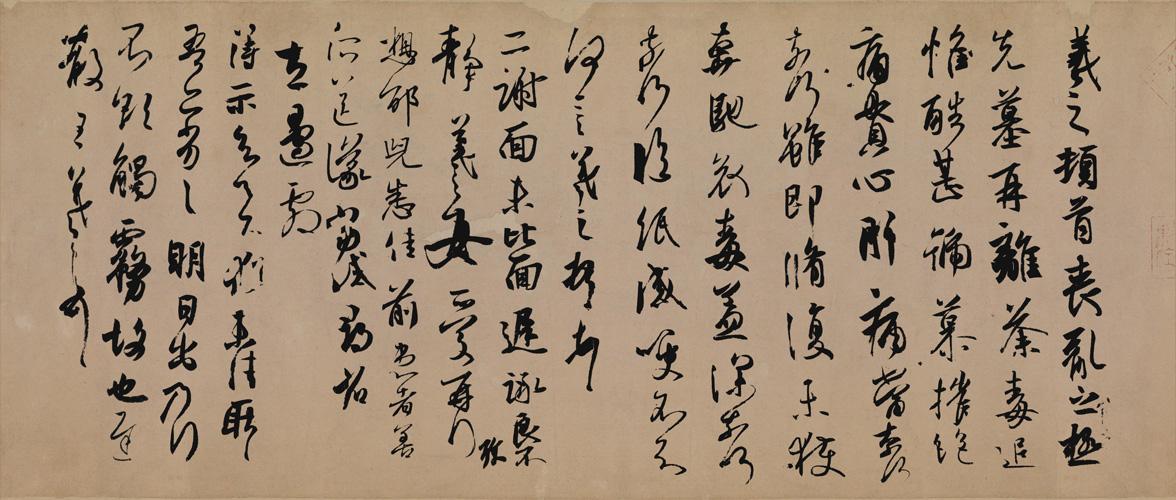 羲之頓首喪亂之極
先墓再離荼毒追
惟酷甚號慕摧絕
痛貫心肝痛當奈何
奈何雖即脩復未獲
奔馳哀毒益深奈何
奈何臨紙感哽不知
何言羲之頓首
二謝面未比面遲詠良不
靜羲之女愛再拜
想邵兒悉佳前患者善
所送議當試尋省
左邊劇
得示知足下猶未佳耿耿
吾亦劣劣明日出乃行
不欲觸霧故也遲
散王羲之頓首